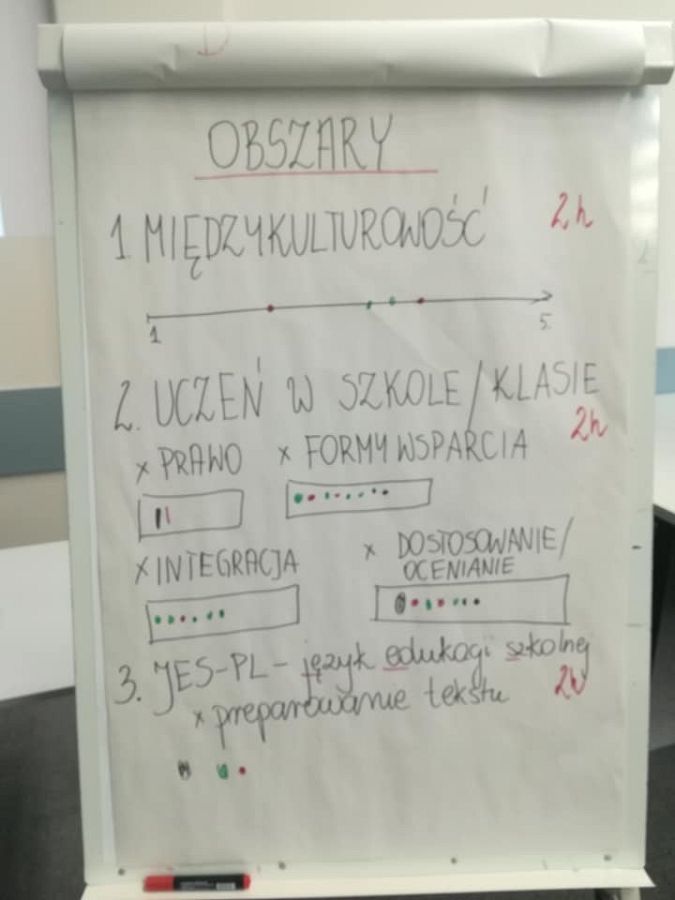 OBSZARY
1. MIĘDZYKULTUROWOŚĆ 2h
1 5
2. UCZEŃ W SZKOLE/KLASIE
2h
x PRAWO x FORMY WSPARCIA
x INTEGRACJA x DOSTOSOWANIE/
OCENIANIE
3. JES-PL - język edukacji szkolnej
x preparowanie tekstu 2h